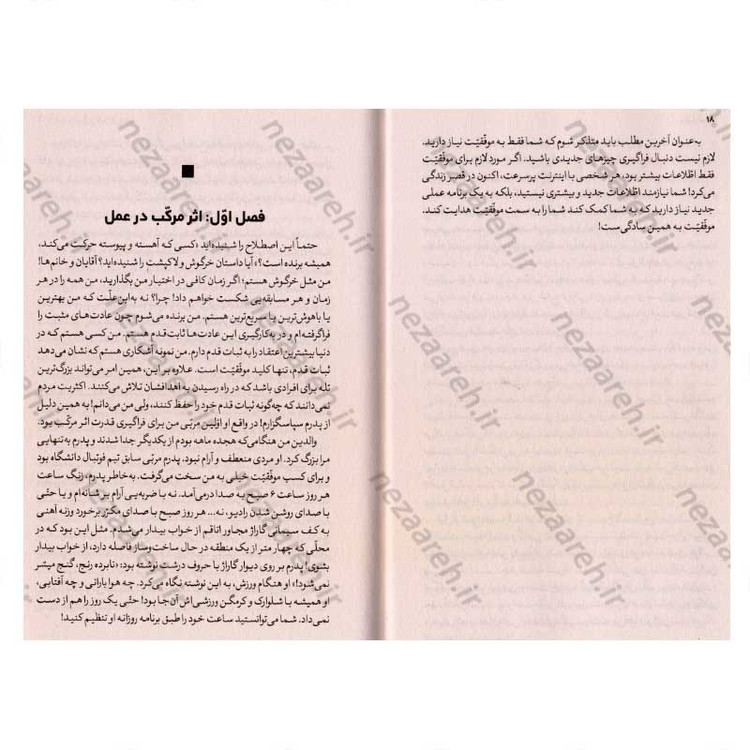 ۱۸
به‌عنوان آخرین مطلب باید متذکر شوم که شما فقط به موفّقیّت نیاز دارید.
لازم نیست دنبال فراگیری چیزهای جدیدی باشید. اگر مورد لازم برای موفّقیّت
فقط اطّلاعات بیشتر بود، هر شخصی با اینترنت پرسرعت، اکنون در قصر زندگی
می‌کرد! شما نیازمند اطّلاعات جدید و بیشتری نیستید، بلکه به یک برنامه عملی
جدید نیاز دارید که به شما کمک کند شما را به سمت موفّقیّت هدایت کند.
موفّقیّت به همین سادگی‌ست!
فصل اوّل: اثر مرکّب در عمل
حتماً این اصطلاح را شنیده‌اید «کسی که آهسته و پیوسته حرکت می‌کند،
همیشه برنده است؟» آیا داستان خرگوش و لاکپشت را شنیده‌اید؟ آقایان و خانم‌ها!
من مثل خرگوش هستم؛ اگر زمان کافی در اختیار من بگذارید، من همه را در هر
زمان و هر مسابقه‌یی شکست خواهم داد! چرا؟ نه به‌این علّت که من بهترین
یا باهوش‌ترین یا سریع‌ترین هستم. من برنده می‌شوم چون عادت‌های مثبت را
فراگرفته‌ام و در به‌کارگیری این عادت‌ها ثابت‌قدم هستم. من کسی هستم که در
دنیا بیشترین اعتقاد را به ثبات قدم دارم. من نمونه آشکاری هستم که نشان می‌دهد
ثبات قدم، تنها کلید موفّقیّت است. علاوه بر این، همین امر می‌تواند بزرگ‌ترین
تله برای افرادی باشد که در راه رسیدن به اهدافشان تلاش می‌کنند. اکثریت مردم
نمی‌دانند که چه‌گونه ثبات قدم خود را حفظ کنند، ولی من می‌دانم! به همین دلیل
از پدرم سپاسگزارم! در واقع او اوّلین مربّی من برای فراگیری قدرت اثر مرکّب بود.
والدین من هنگامی‌که هجده ماهه بودم از یکدیگر جدا شدند و پدرم به‌تنهایی
مرا بزرگ کرد. او مردی منعطف و آرام نبود. پدرم مربّی سابق تیم فوتبال دانشگاه بود
و برای کسب موفّقیّت خیلی به من سخت می‌گرفت. به‌خاطر پدرم، زنگ ساعت
هر روز ساعت ۶ صبح به صدا درمی‌آمد. نه با ضربه‌یی آرام بر شانه‌ام و یا حتّی
با صدای روشن شدن رادیو، نه... هر روز صبح با صدای مکرّر برخورد وزنه آهنی
به کف سیمانی گاراژ مجاور اتاقم از خواب بیدار می‌شدم. مثل این بود که در
محلّی که چهار متر از یک منطقه در حال ساخت‌وساز فاصله دارد، از خواب بیدار
بشوی! پدرم بر روی دیوار گاراژ با حروف درشت نوشته بود: «نابرده رنج، گنج میسّر
نمی‌شود!» او هنگام ورزش، به این نوشته نگاه می‌کرد. چه هوا بارانی و چه آفتابی،
او همیشه با شلوارک و گرمکن ورزشی‌اش آن‌جا بود! حتّی یک روز را هم از دست
نمی‌داد. شما می‌توانستید ساعت خود را طبق برنامه روزانه او تنظیم کنید!
nezaareh.ir